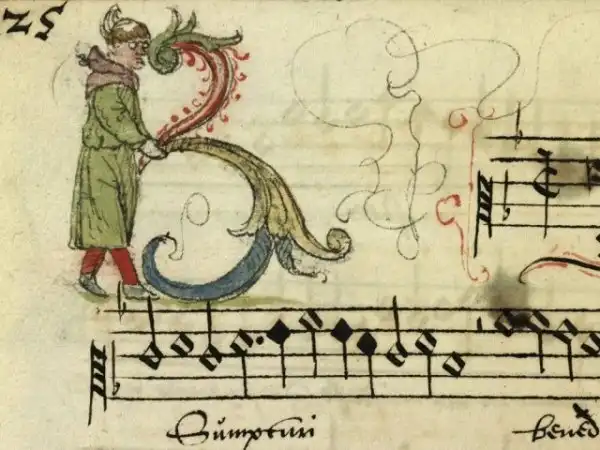 25
Sŭmpturi bened